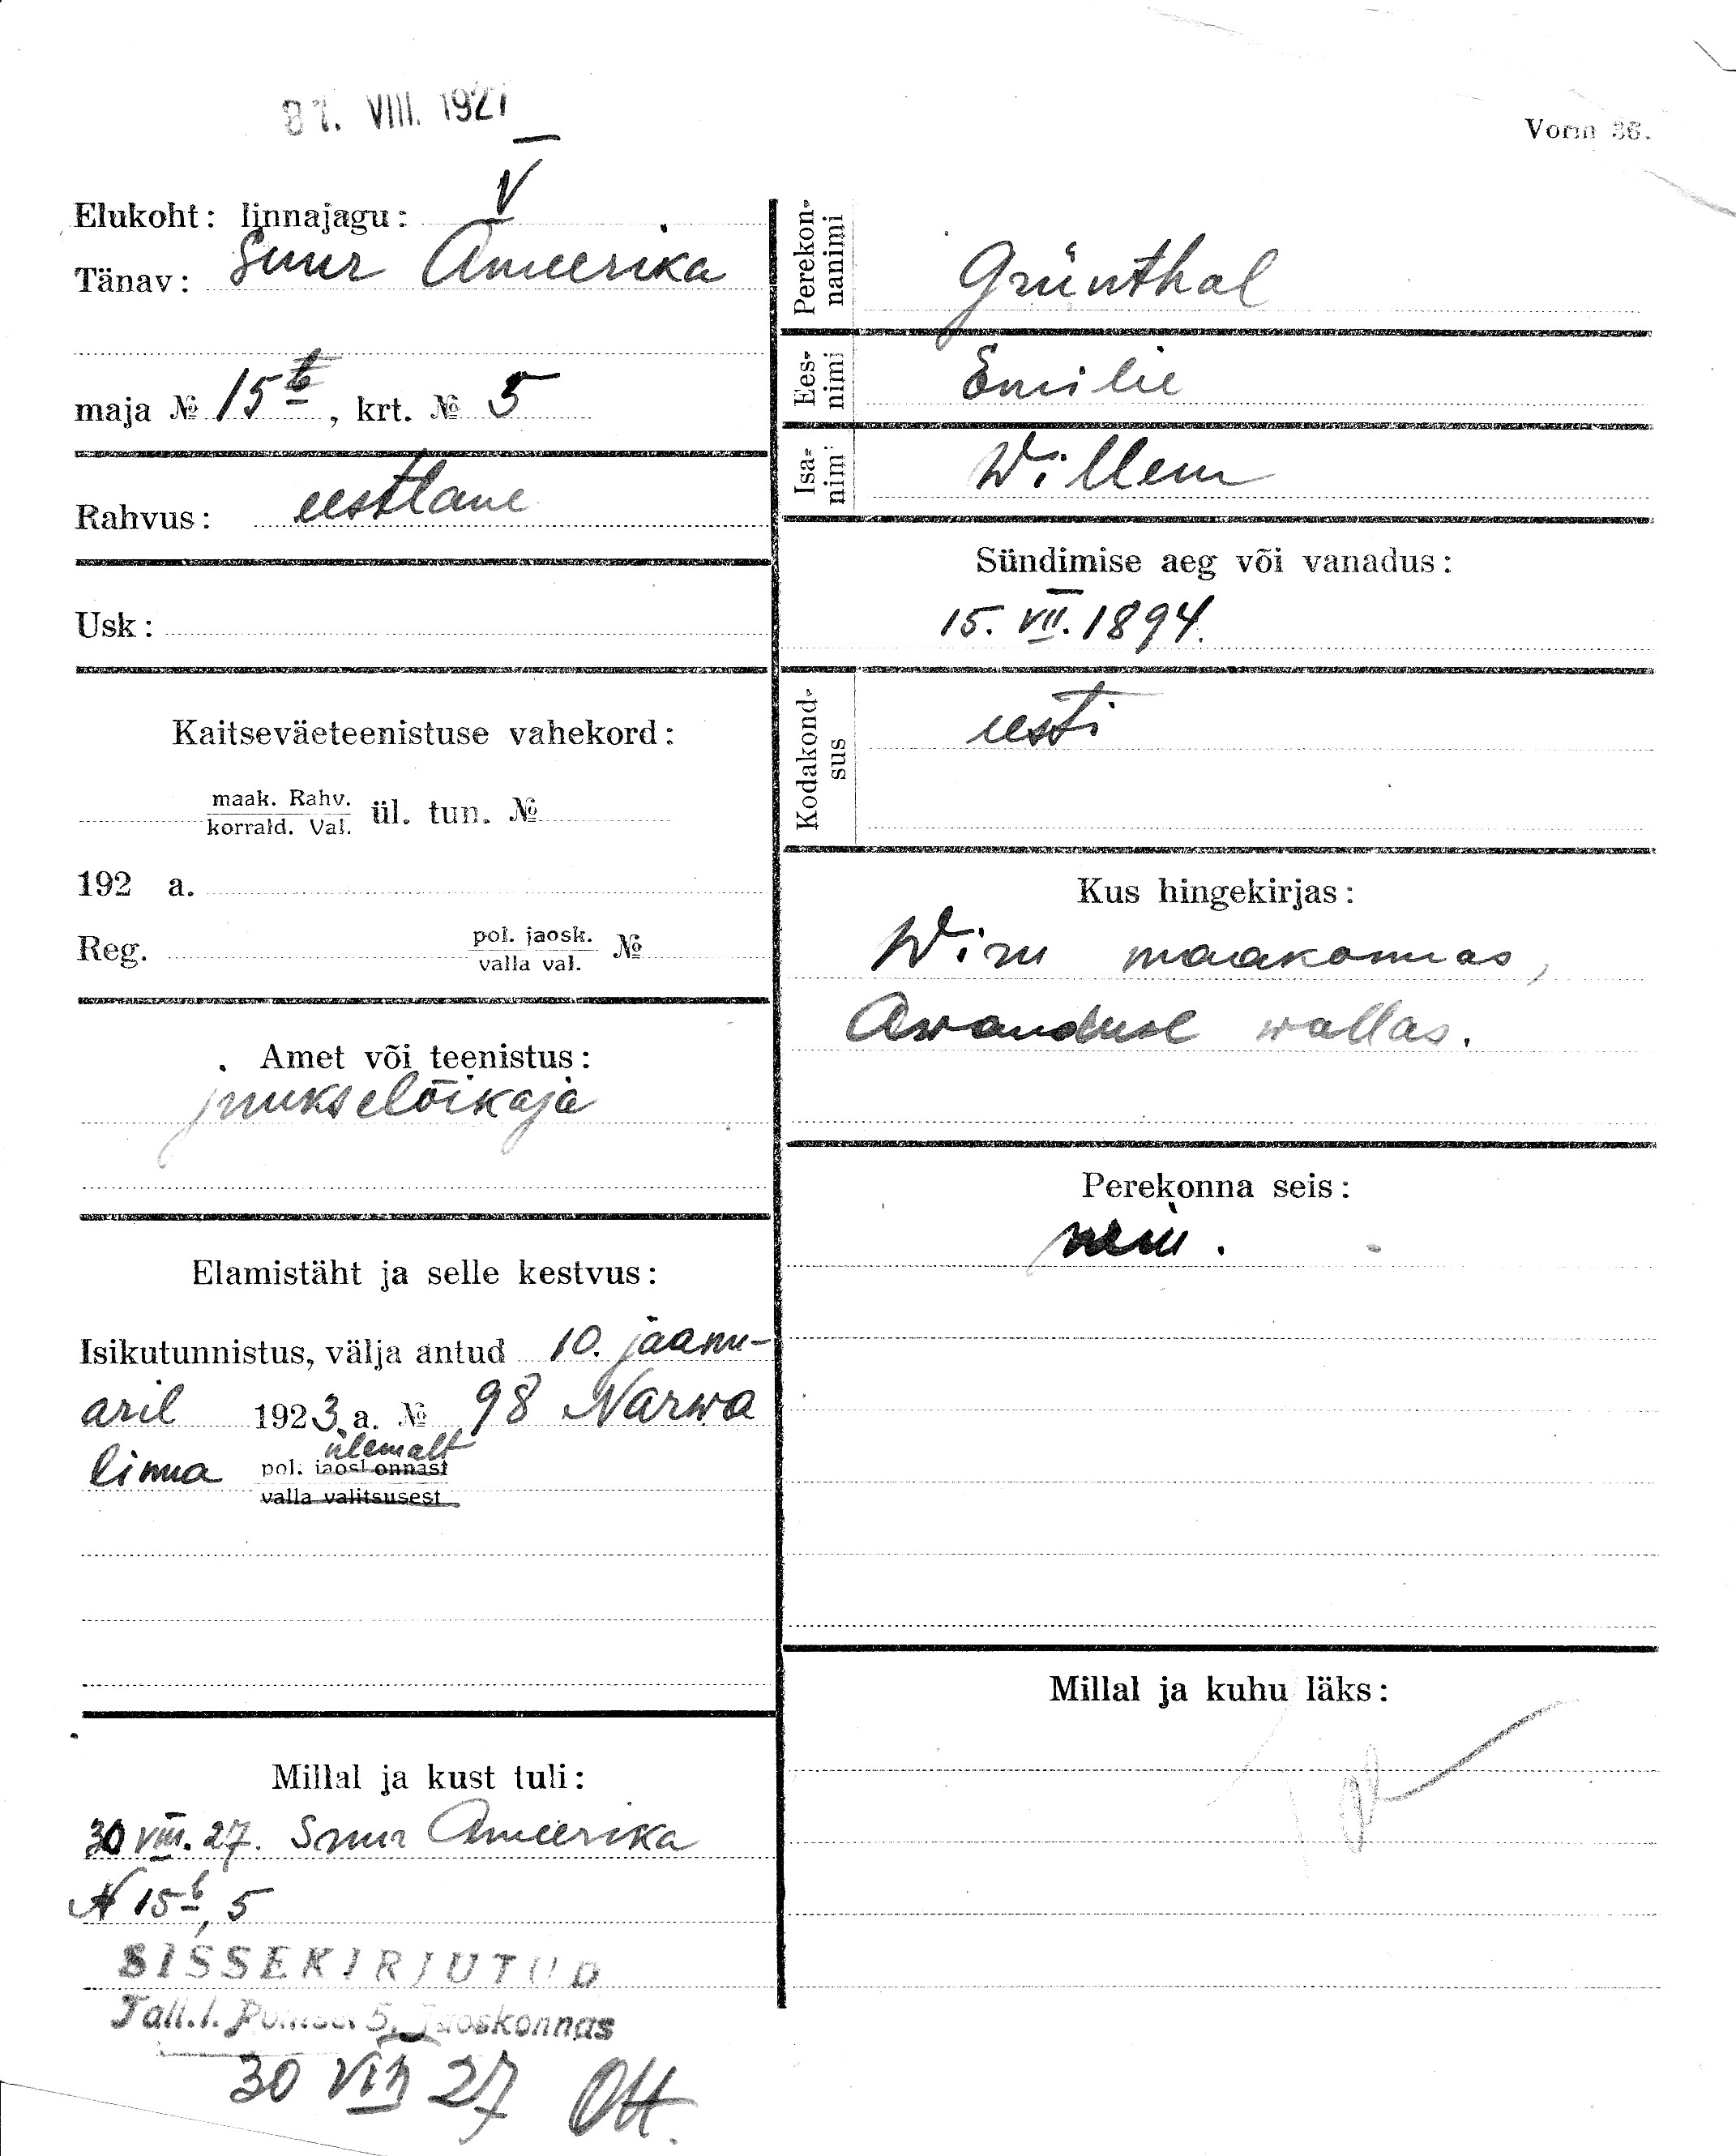 31. VIII. 1927
Vorm 36.
Elukoht: linnajagu: V
Tänav: Suur Ameerika
maja № 15 b, krt. № 5
Rahvus: eestlane
Usk:
Kaitseväeteenistuse vahekord:
maak. Rahv.
korrald. Val. ül. tun. №
192 a.
Reg. pol. jaosk. №
valla val.
Amet või teenistus:
juukselõikaja
Elamistäht ja selle kestvus:
Isikutunnistus, välja antud 10. jaanu-
aril 1923 a. № 98 Narwa
ülemalt
linna pol. jaoskonnast
valla valitsusest
Millal ja kust tuli:
30 VIII. 27. Suur Ameerika
N 15 b, 5
SISSEKIRJUTUD
Tall. l. Politsei 5. Jaoskonnas
30 VIII 27 Ott.
Perekon-
nanimi
Grünthal
Ees-
nimi
Emilie
Isa-
nimi
Willem
Sündimise aeg või vanadus:
15. VII. 1894.
Kodakond-
sus
eesti
Kus hingekirjas:
Wiru maakonnas,
Awanduse wallas.
Perekonna seis:
Millal ja kuhu läks: